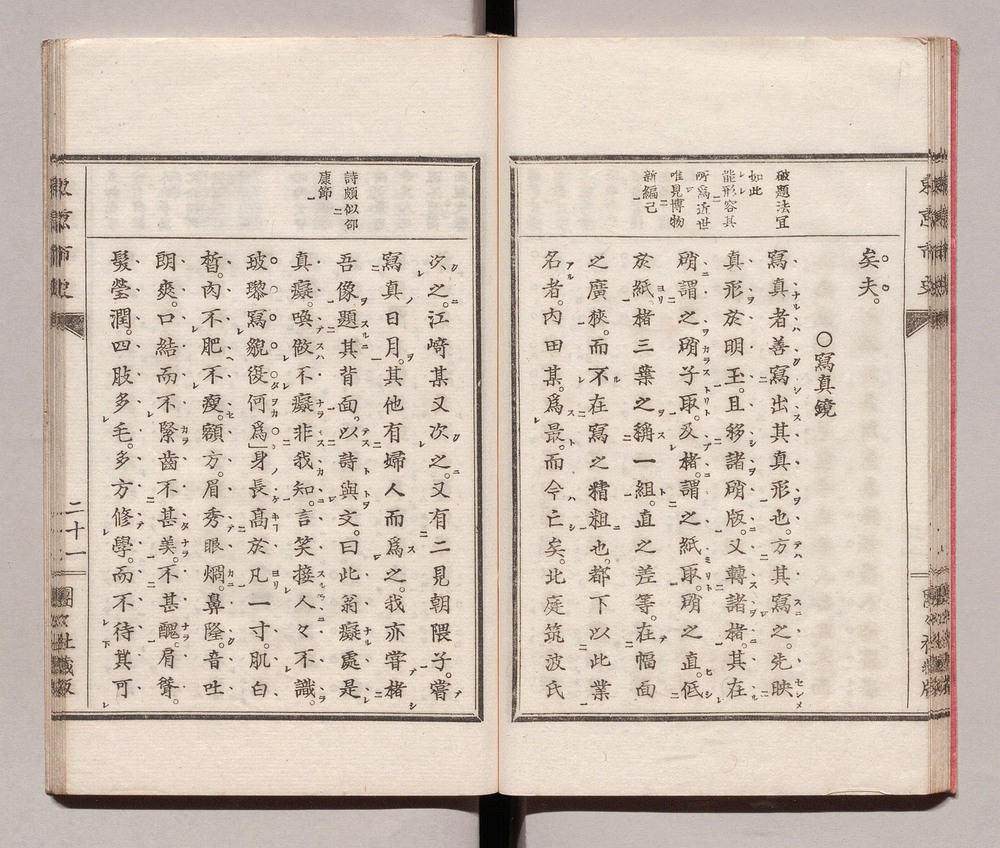 破題法宜
如此
能形容其
所爲近世
唯見博物
新編己
矣夫。
〇寫真鏡
寫真者善寫出其真形也。方其寫之。先映
真形於明玉。且移諸硝版。又轉諸楮。其在
硝謂之硝子取。及楮。謂之紙取。硝之直。低
於紙。楮三葉之稱一組。直之差等。在幅面
之廣狹。而不在寫之精粗也。都下以此業
名者。内田某。爲最。而今亡矣。北庭筑波氏
詩頗似邵
康節
次之。江﨑某又次之。又有二見朝隈子。嘗
寫真日月。其他有婦人而爲之。我亦嘗楮
吾像題其背面。以詩與文。曰此翁癡處是
真癡。喚做不癡非我知。言笑接人人不識。
玻瓈寫貌復何爲」身長高於凡一寸。肌白
晳。肉不肥不瘦。額方。眉秀眼烱。鼻隆。音吐
朗爽。口結而不緊齒不甚美。不甚醜。肩聳。
髮瑩潤。四肢多毛。多方修學。而不待其可
東京市史
二十一